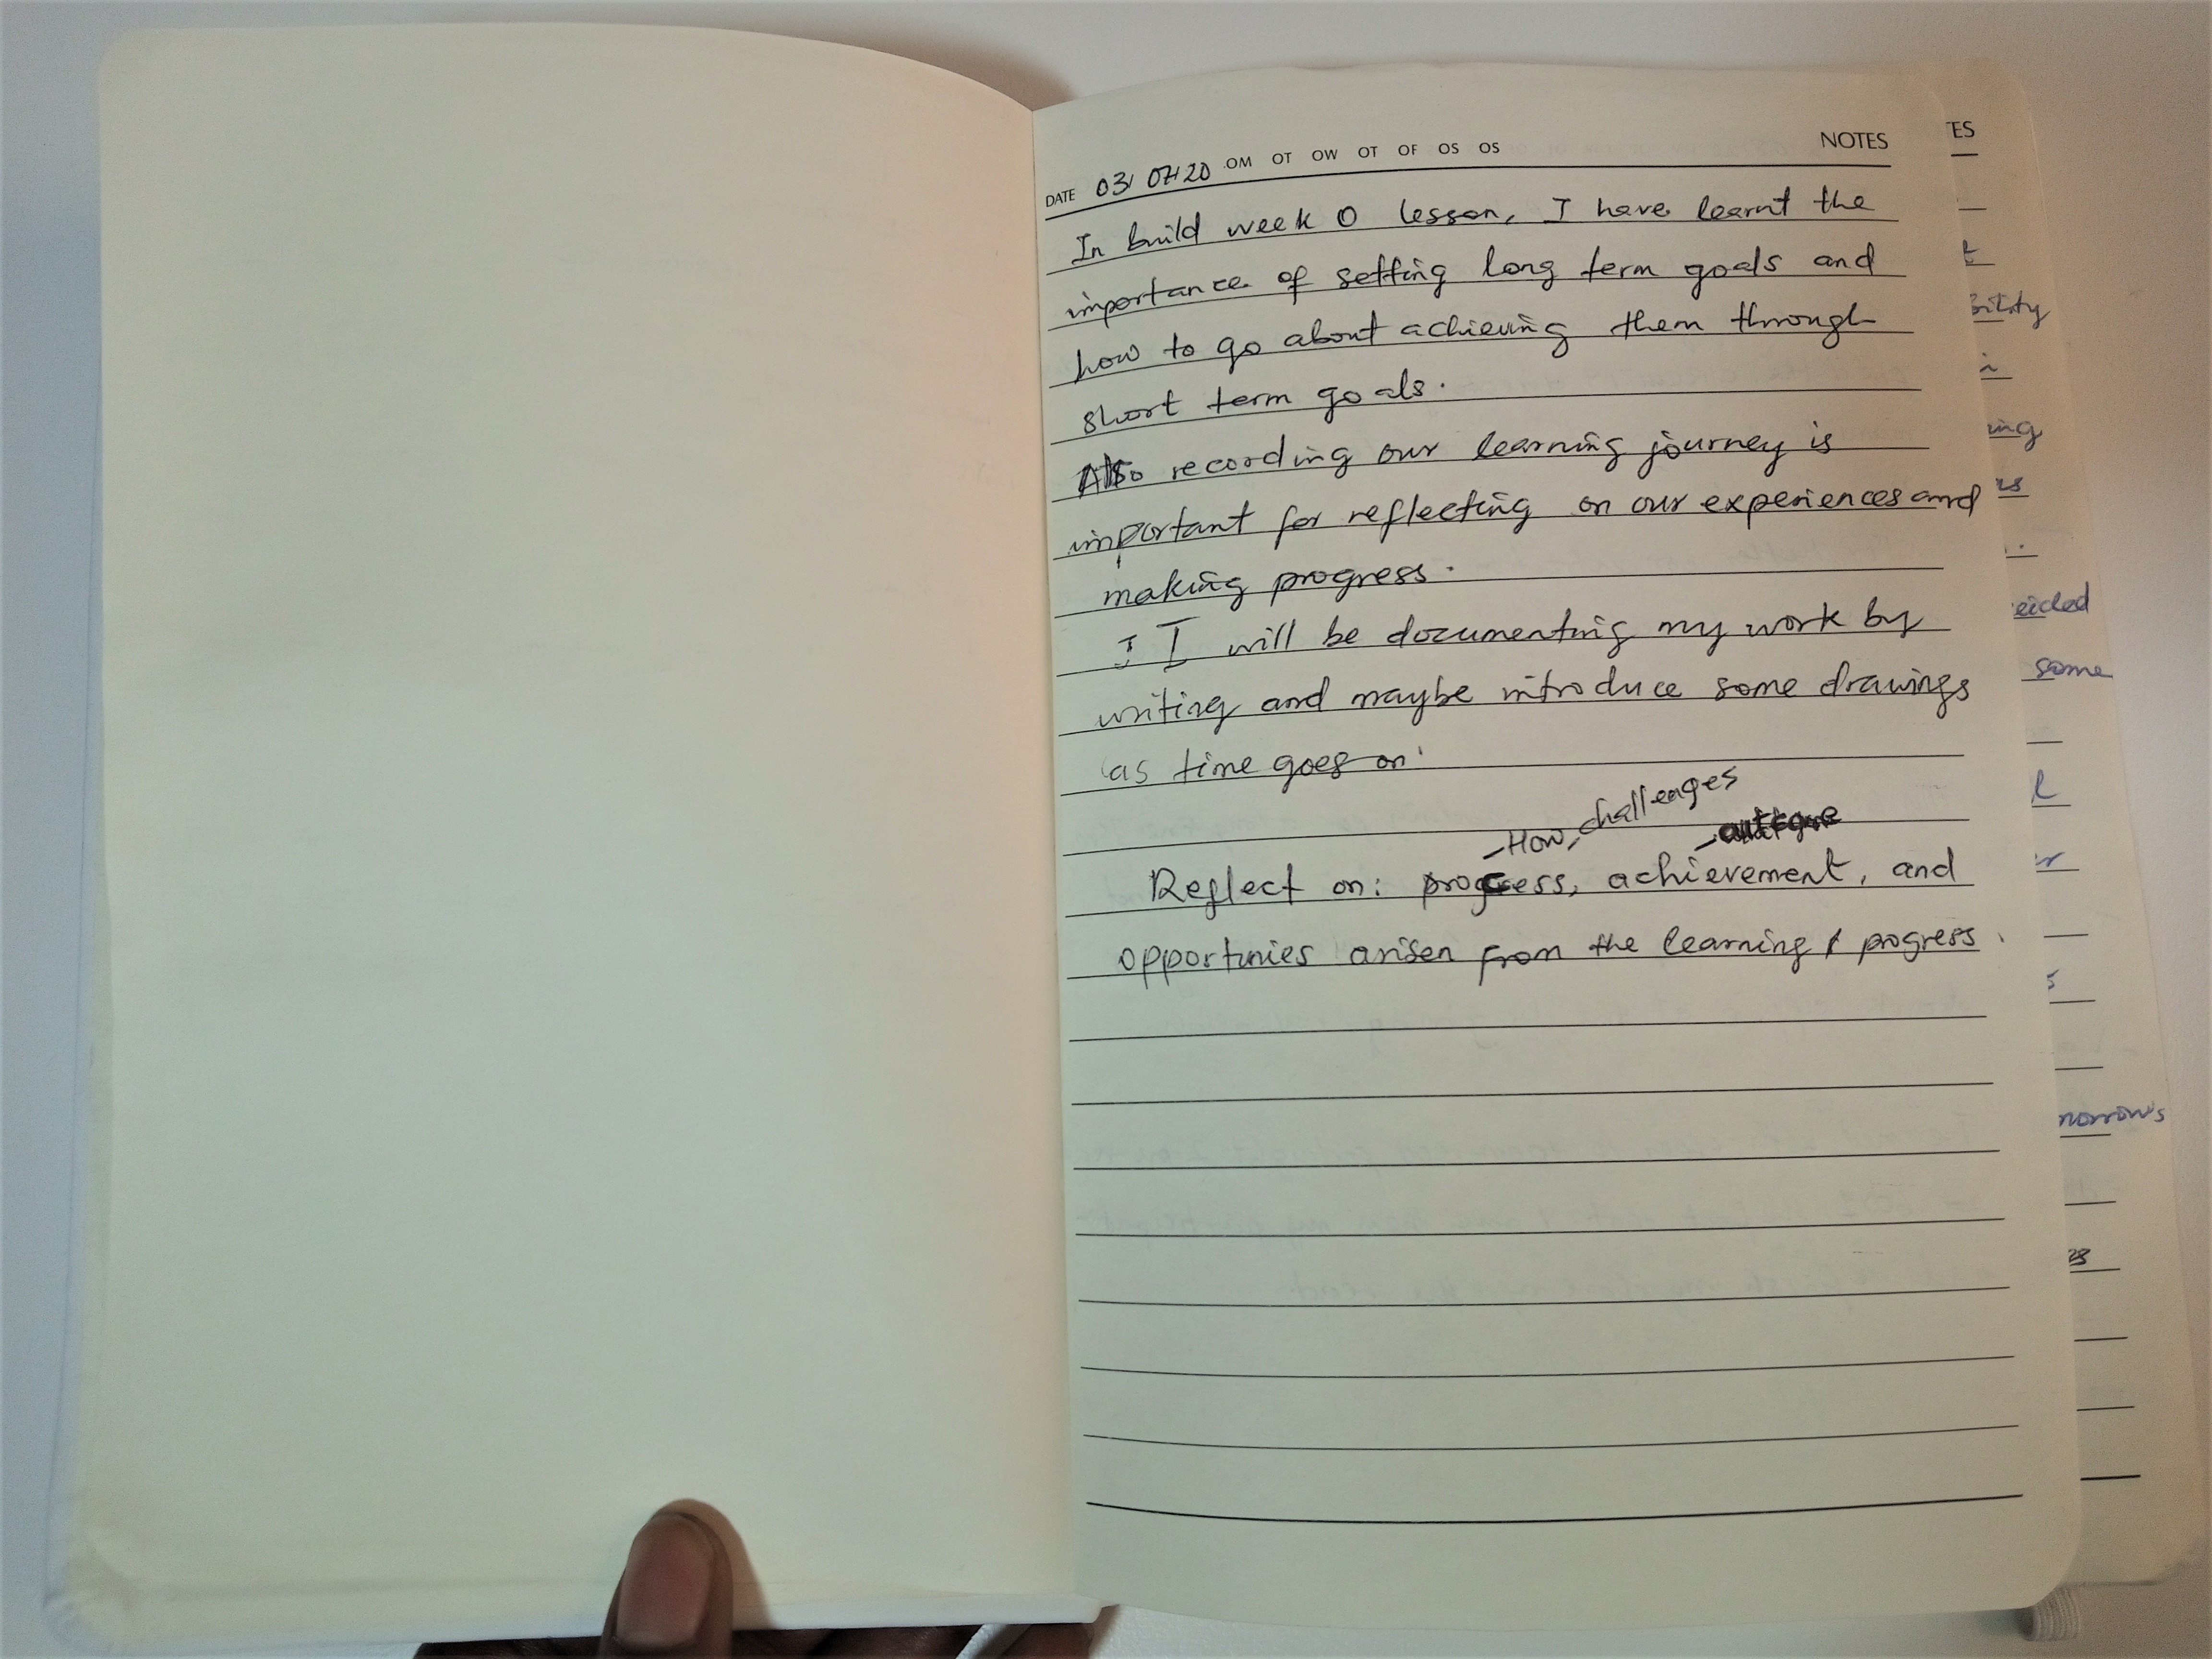 DATE 03/07/20 OM OT OW OT OF OS OS NOTES
In build week 0 lesson, I have learnt the
importance of setting long term goals and
how to go about achieving them through
short term goals.
Also recording our learning journey is
important for reflecting on our experiences and
making progress.
I I will be documenting my work by
writing and maybe introduce some drawings
as time goes on.
- How, challenges
- outcome
Reflect on: process, achievement, and
opportunies arisen from the learning & progress.
TES
t
bility
ing
as
eided
some
l
er
s
morrow's